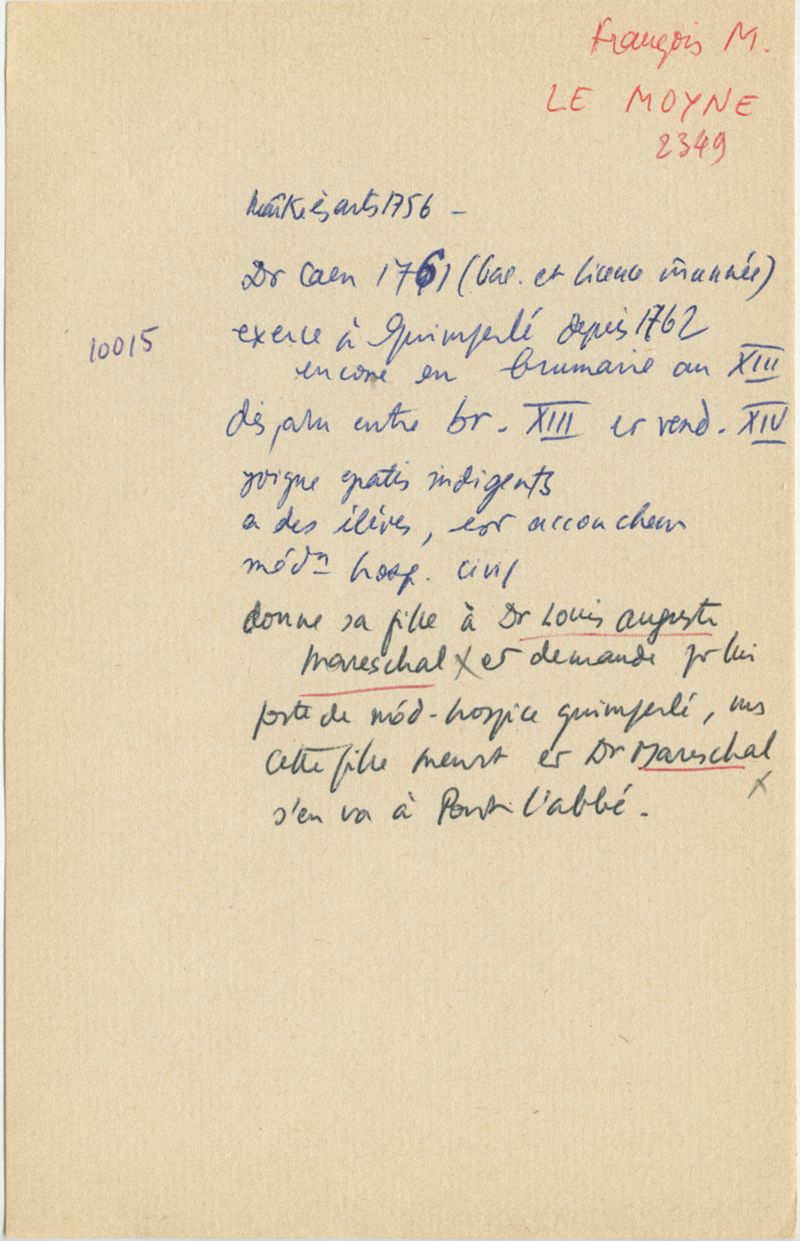 François M.
LE MOYNE
2349
Maître ès arts 1756 –
Dr Caen 1761 (bac. et licence m année)
10015
exerce à Quimperlé depuis 1762
encore en brumaire an XIII
disparu entre br. XIII et vend. XIV
soigne gratis indigents
a des élèves, est accoucheur
médn hosp. civil
donne sa fille à Dr Louis Auguste
Mareschal x et demande pr lui
poste de méd-hospice quimperlé, ms
cette fille meurt et Dr Mareschal
x
s'en va à Pont l'abbé.